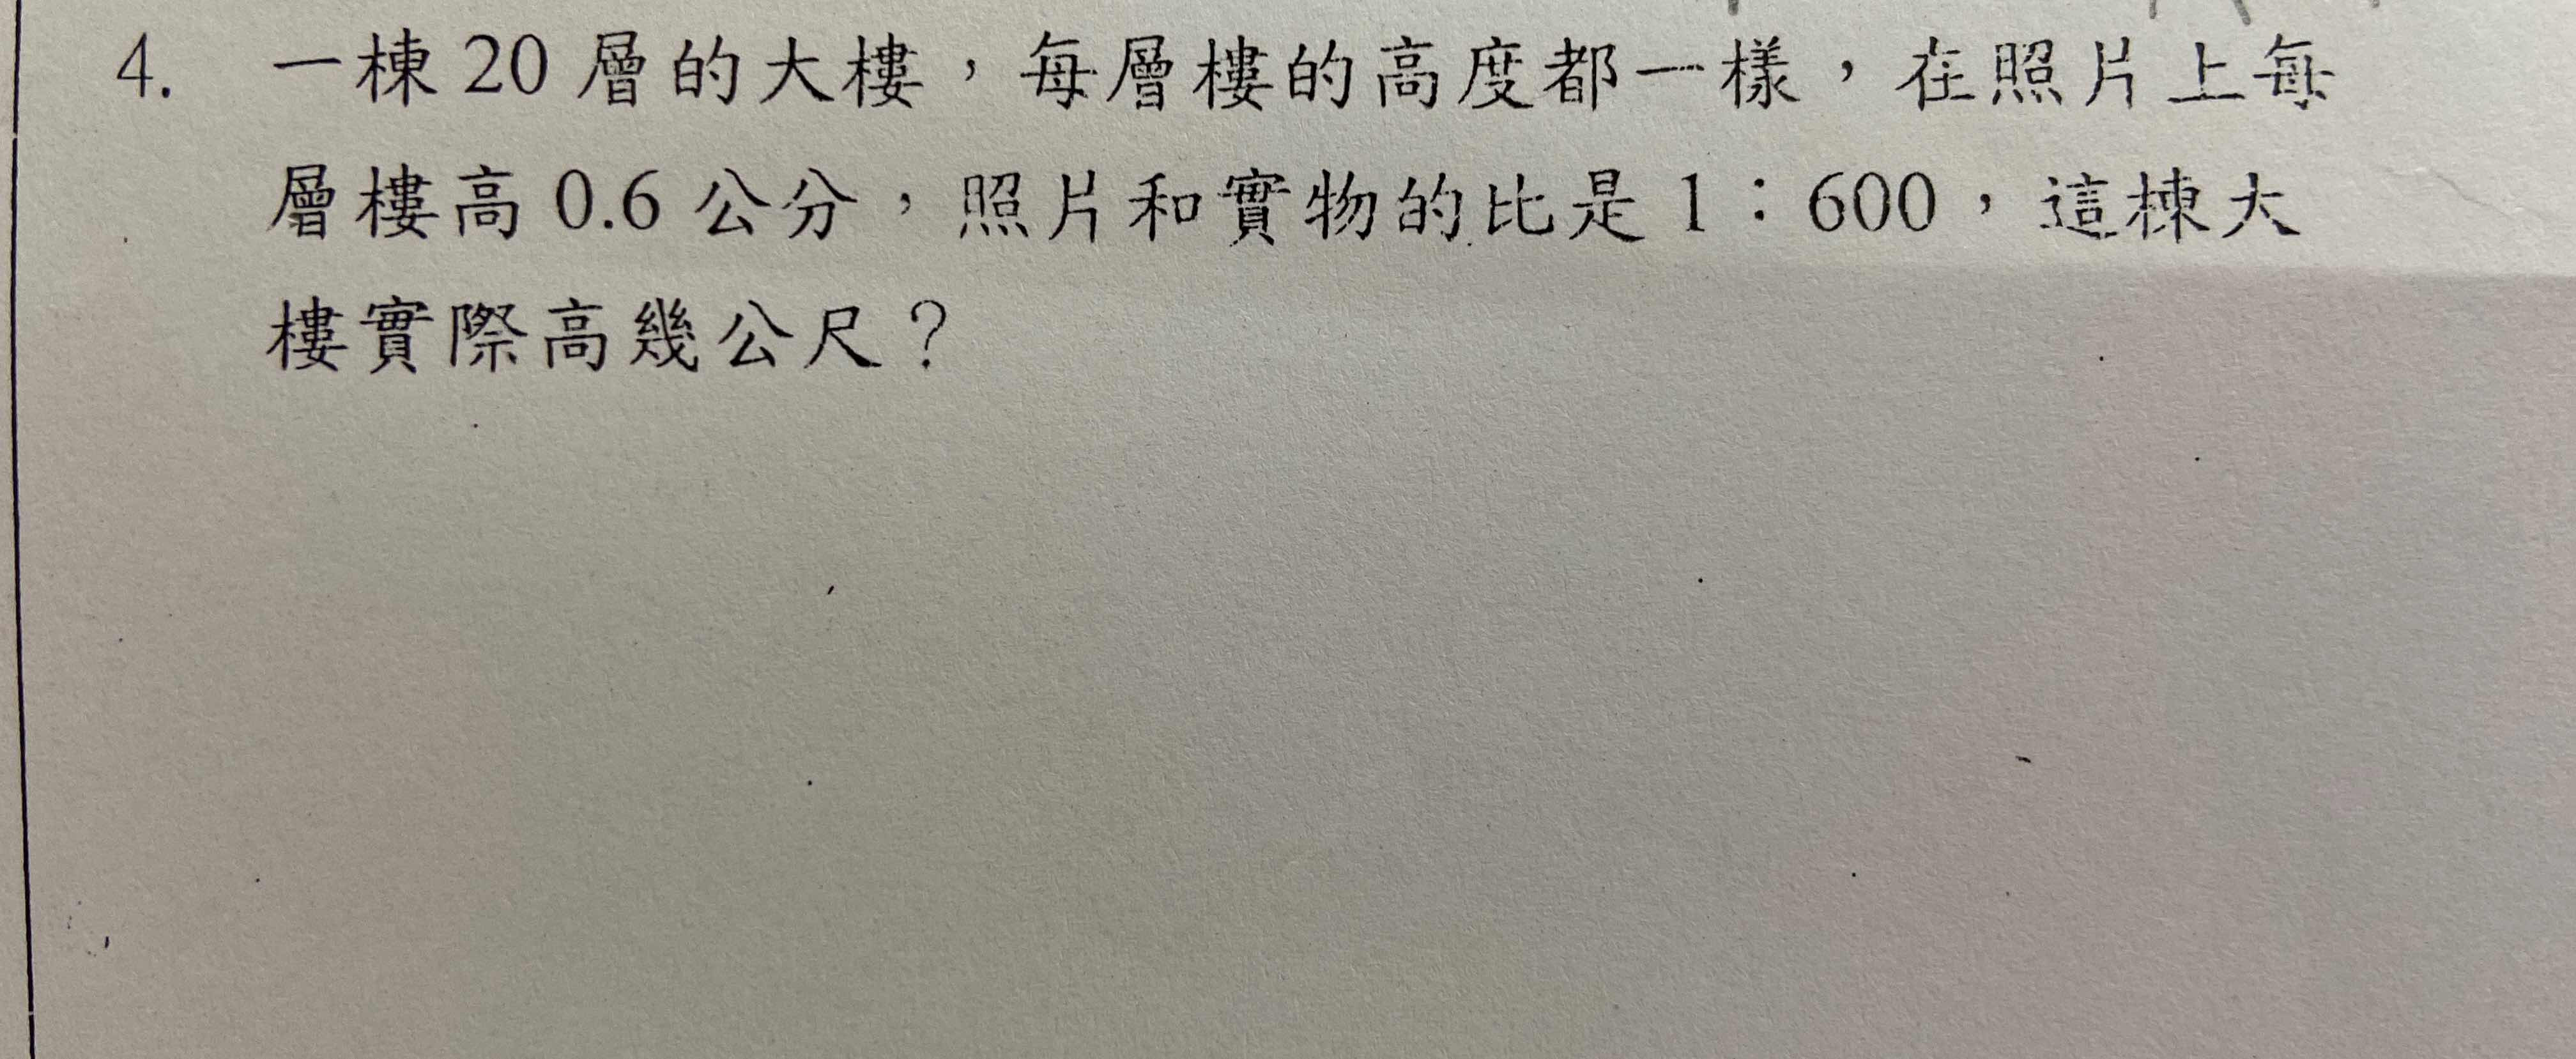 4. 一棟 20 層的大樓，每層樓的高度都一樣，在照片上每
層樓高 0.6 公分，照片和實物的比是 1：600，這棟大
樓實際高幾公尺？